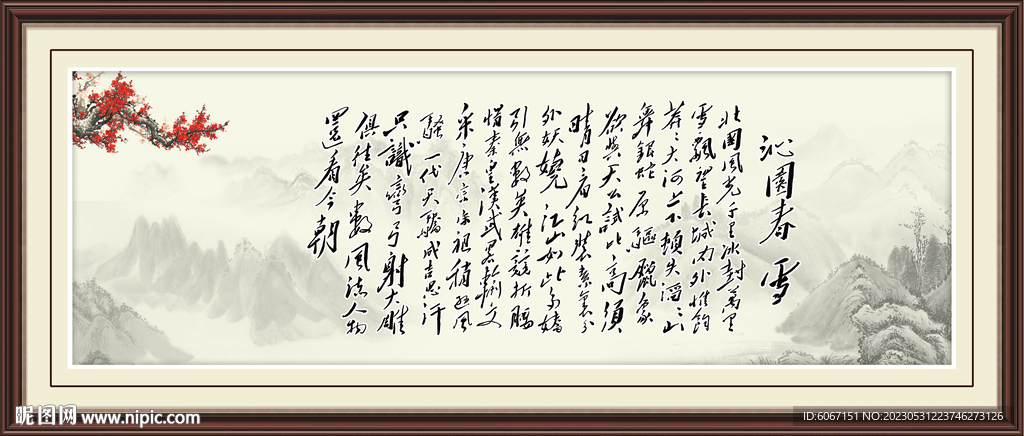 沁園春 雪
北國風光千里冰封萬里
雪飄望長城內外惟餘
莽〻大河上下頓失滔〻山
舞銀蛇原驅臘象
欲與天公試比高須
晴日看紅裝素裹分
外妖嬈江山如此多嬌
引無數英雄競折腰
惜秦皇漢武略輸文
采唐宗宋祖稍遜風
騷一代天驕成吉思汗
只識彎弓射大雕
俱往矣數風流人物
還看今朝
昵图网 www.nipic.com
ID:6067151 NO:20230531223746273126